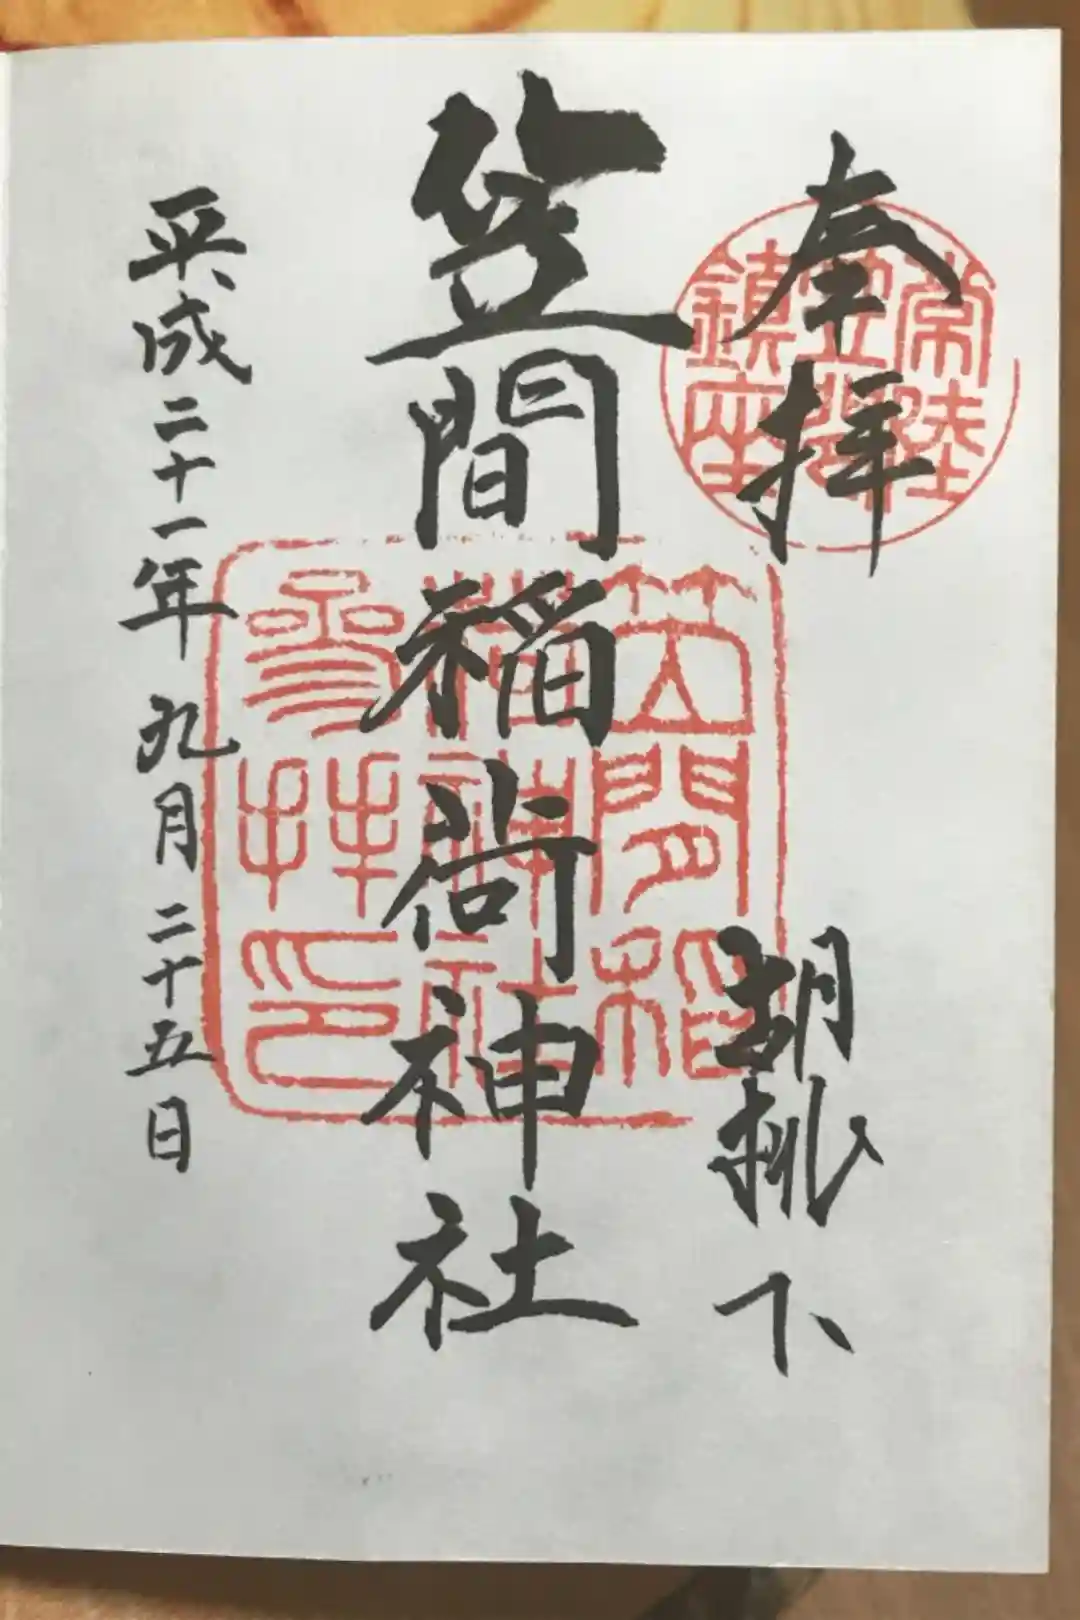 奉拝
胡桃下
笠間稲荷神社
平成二十一年九月二十五日
常陸
笠間
鎮座
笠間稲
荷神社
参拝印